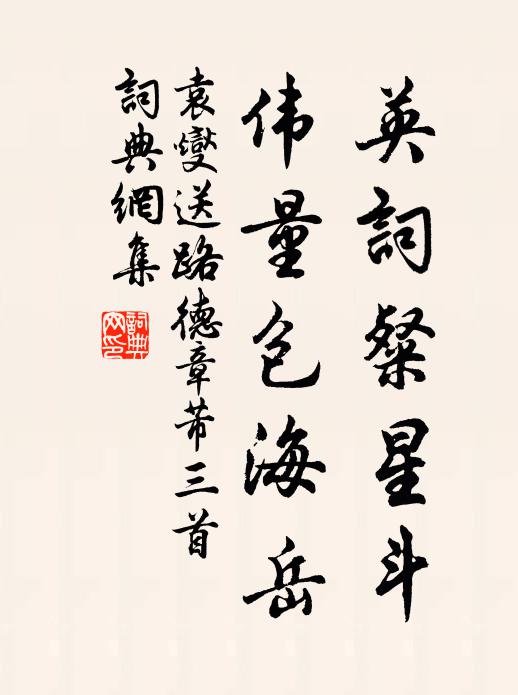 英詞粲星斗
伟量包海岳
袁燮送路德章芾三首
詞典網集
詞典网印